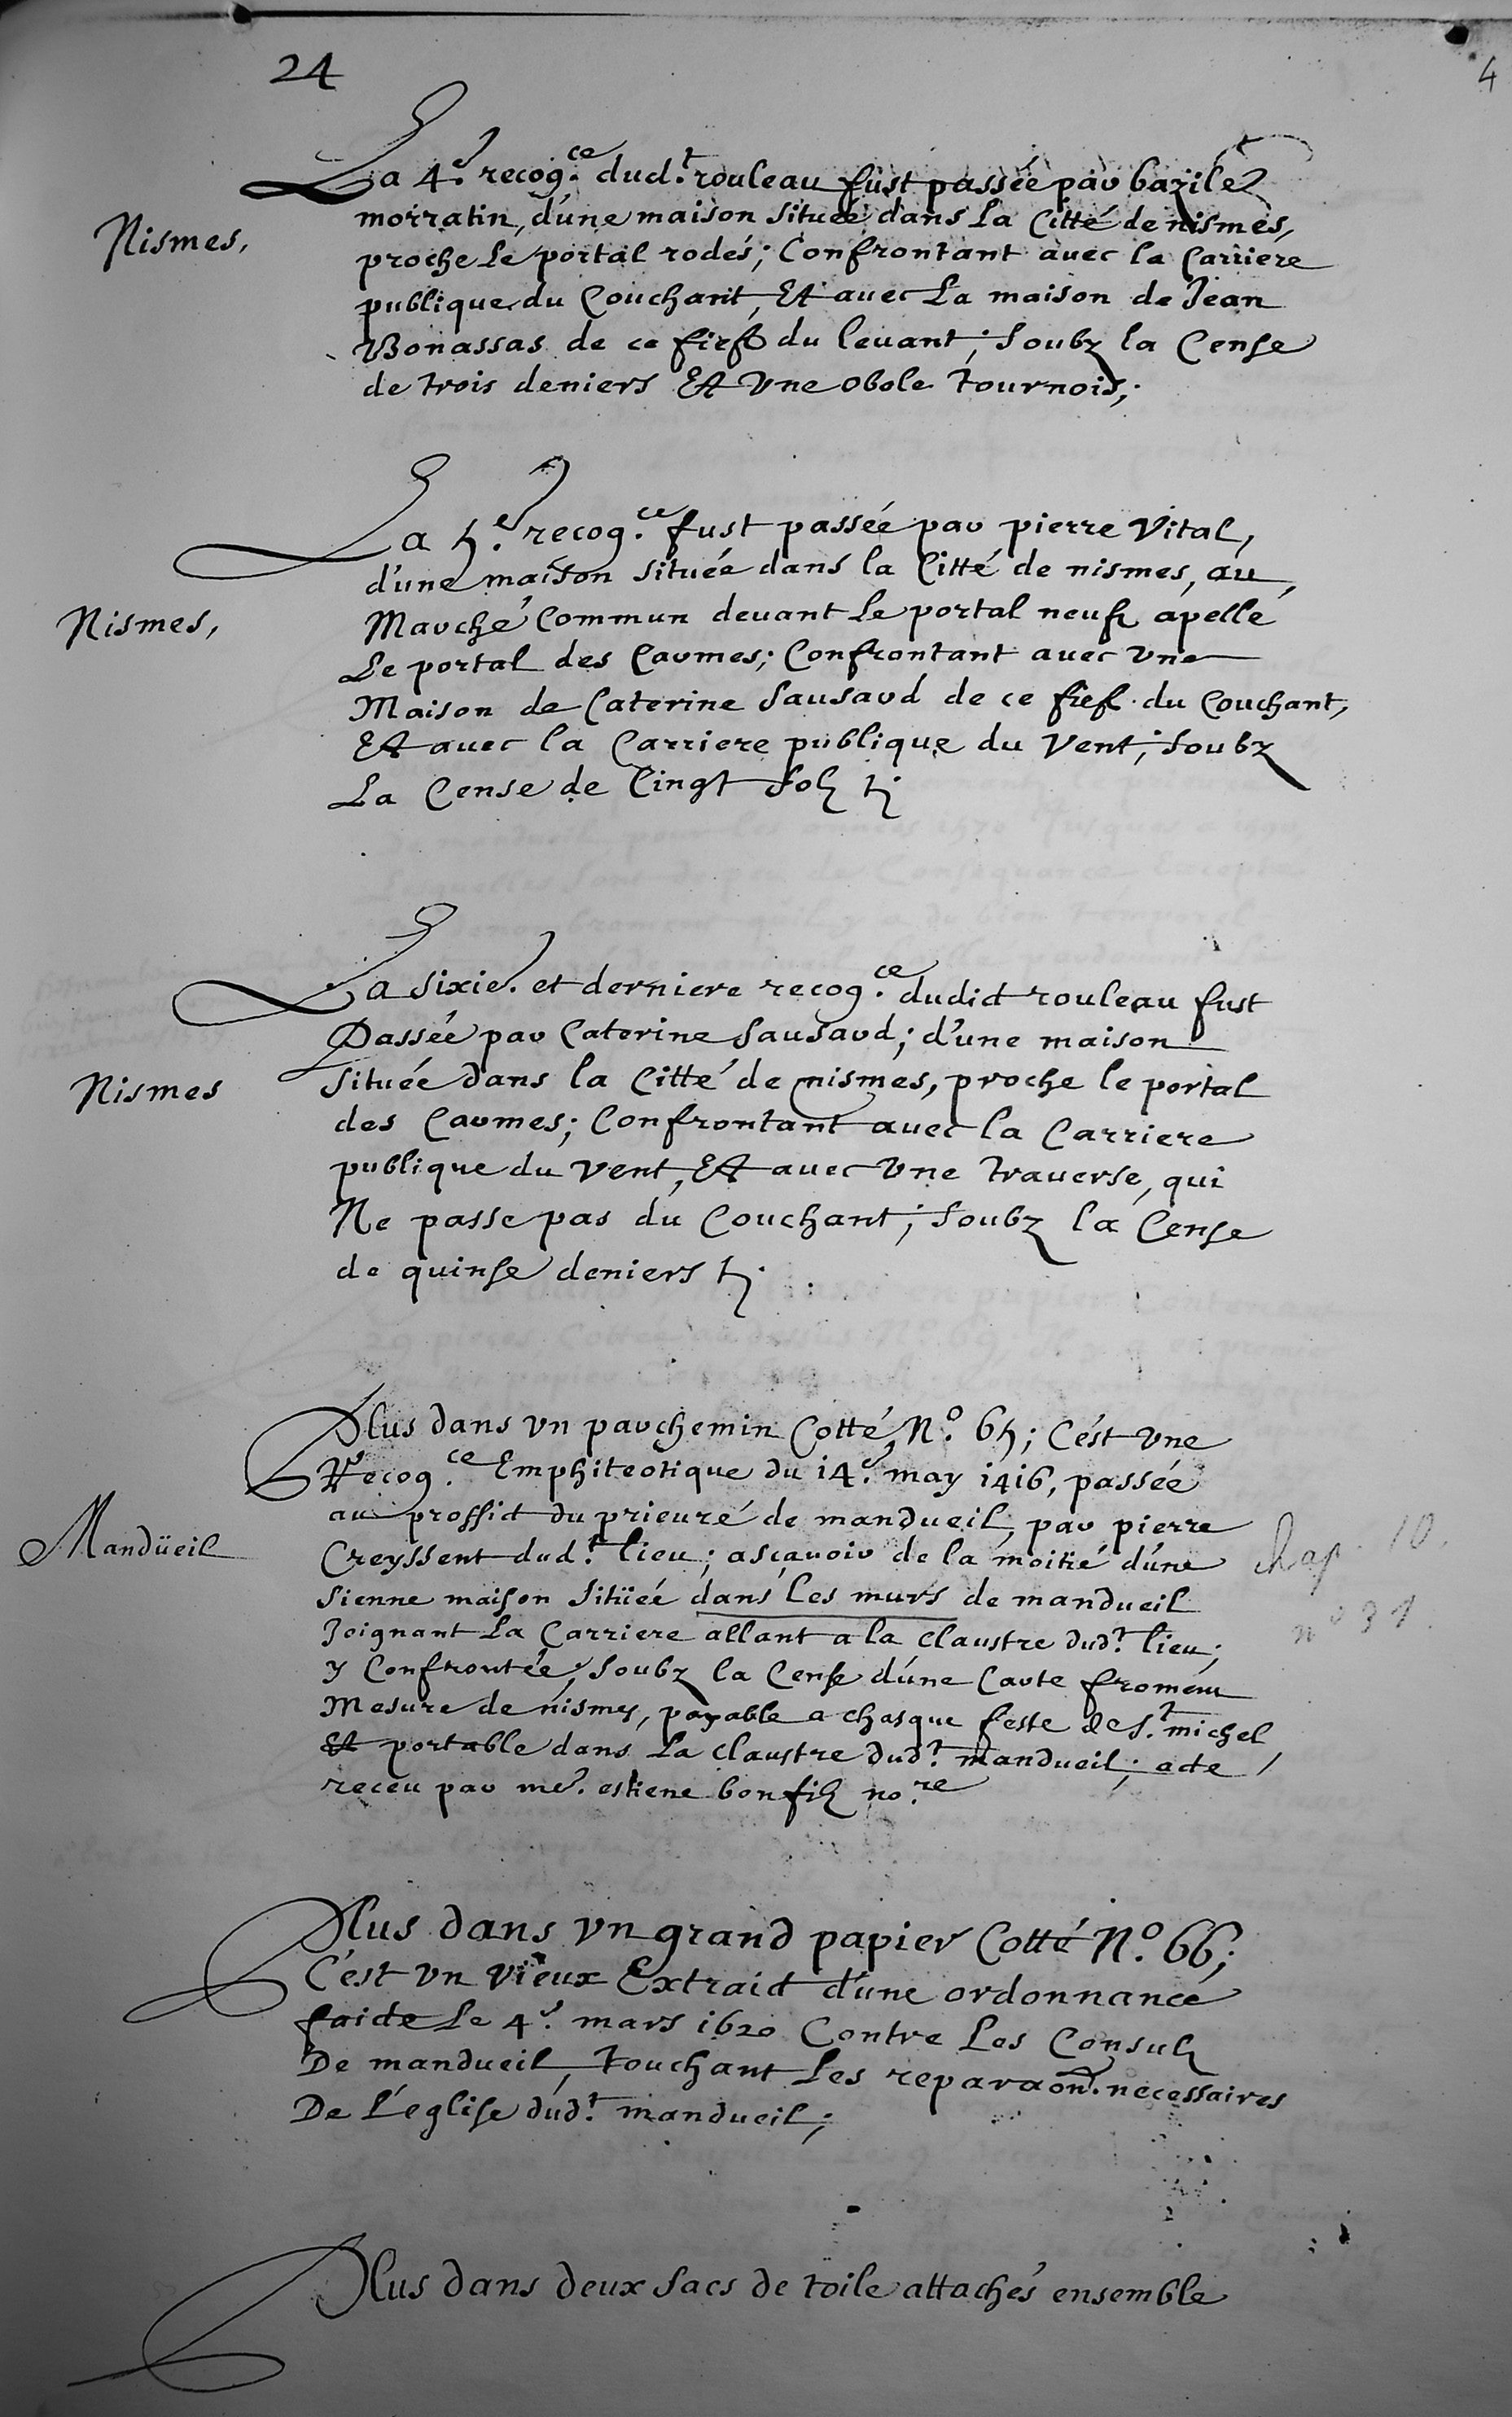 24
4
La 4.e recog.ce dud.t rouleau fust passée par bazile
morratin, d'une maison située dans La Citté de nismes,
Nismes,
proche Le portal rodés; Confrontant avec la Carriere
publique du Couchant, Et avec La maison de Jean
Bonassas de ce fief du levant; Soubz la Cense
de trois deniers Et Une obole tournois;
La 5.e recog.ce fust passée par pierre Vital,
d'une maison située dans la Citté de nismes, au
Nismes,
Marché Commun devant Le portal neuf apellé
Le portal des Carmes; Confrontant avec Une
Maison de Caterine Sausard de ce fief du Couchant,
Et avec la Carriere publique du Vent; Soubz
La Cense de Cinqt Solz t;
La Sixie. et derniere recog.ce dudict rouleau fust
Passée par Caterine Sausard; d'une maison
Nismes
Située dans la Citté de nismes, proche le portal
des Carmes; Confrontant avec la Carriere
publique du Vent, Et avec Une traverse, qui
Ne passe pas du Couchant; Soubz la Cense
de quinse deniers t;
Plus dans Vn parchemin Cotté N.o 65; C'est Vne
Recog.ce Emphiteotique du 14.e may 1416, passée
au proffict du prieuré de mandueil, par pierre
Mandüeil
Creyssent dud.t lieu; asçavoir de la moitié d'une
Sienne maison Sitüéé dans Les murs de mandueil
Joignant La Carriere allant a la Claustre dud.t lieu;
y Confrontée; Soubz la Cense d'une Carte froment
Mesure de nismes, payable a chasque feste de S.t michel
Et portable dans La Claustre dud.t mandueil; acte
receu par me. estiene bonfilz no.re
chap. 10.
n° 31.
Plus dans Vn grand papier Cotté N.o 66;
C'est Vn Vieux Extraict d'une ordonnance
faicte Le 4.e mars 1620 Contre Les Consulz
De mandueil, touchant Les reparaon. necessaires
De L'eglise dud.t mandueil;
Plus dans deux Sacs de toile attachés ensemble